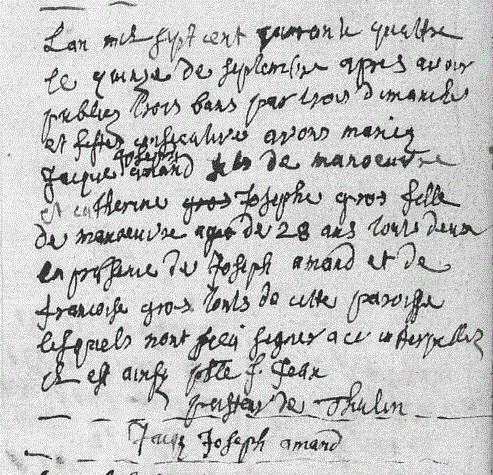 L'an mil sept cent quarante quattre
le quinse de septembre apres avoir
publiez trois bans par trois dimanches
et festes consecutives avons mariez
Jacque joseph amand fils de manoeuvre
et catherine gros Josephe gros fille
de manoeuvre agee de 28 ans touts deux
en presence de Joseph amand et de
francoise gros touts de cette paroisse
lesquels n'ont sceu signer a ce interpellez
et est ainsy
pasteur de Thulin
Jacq Joseph amand